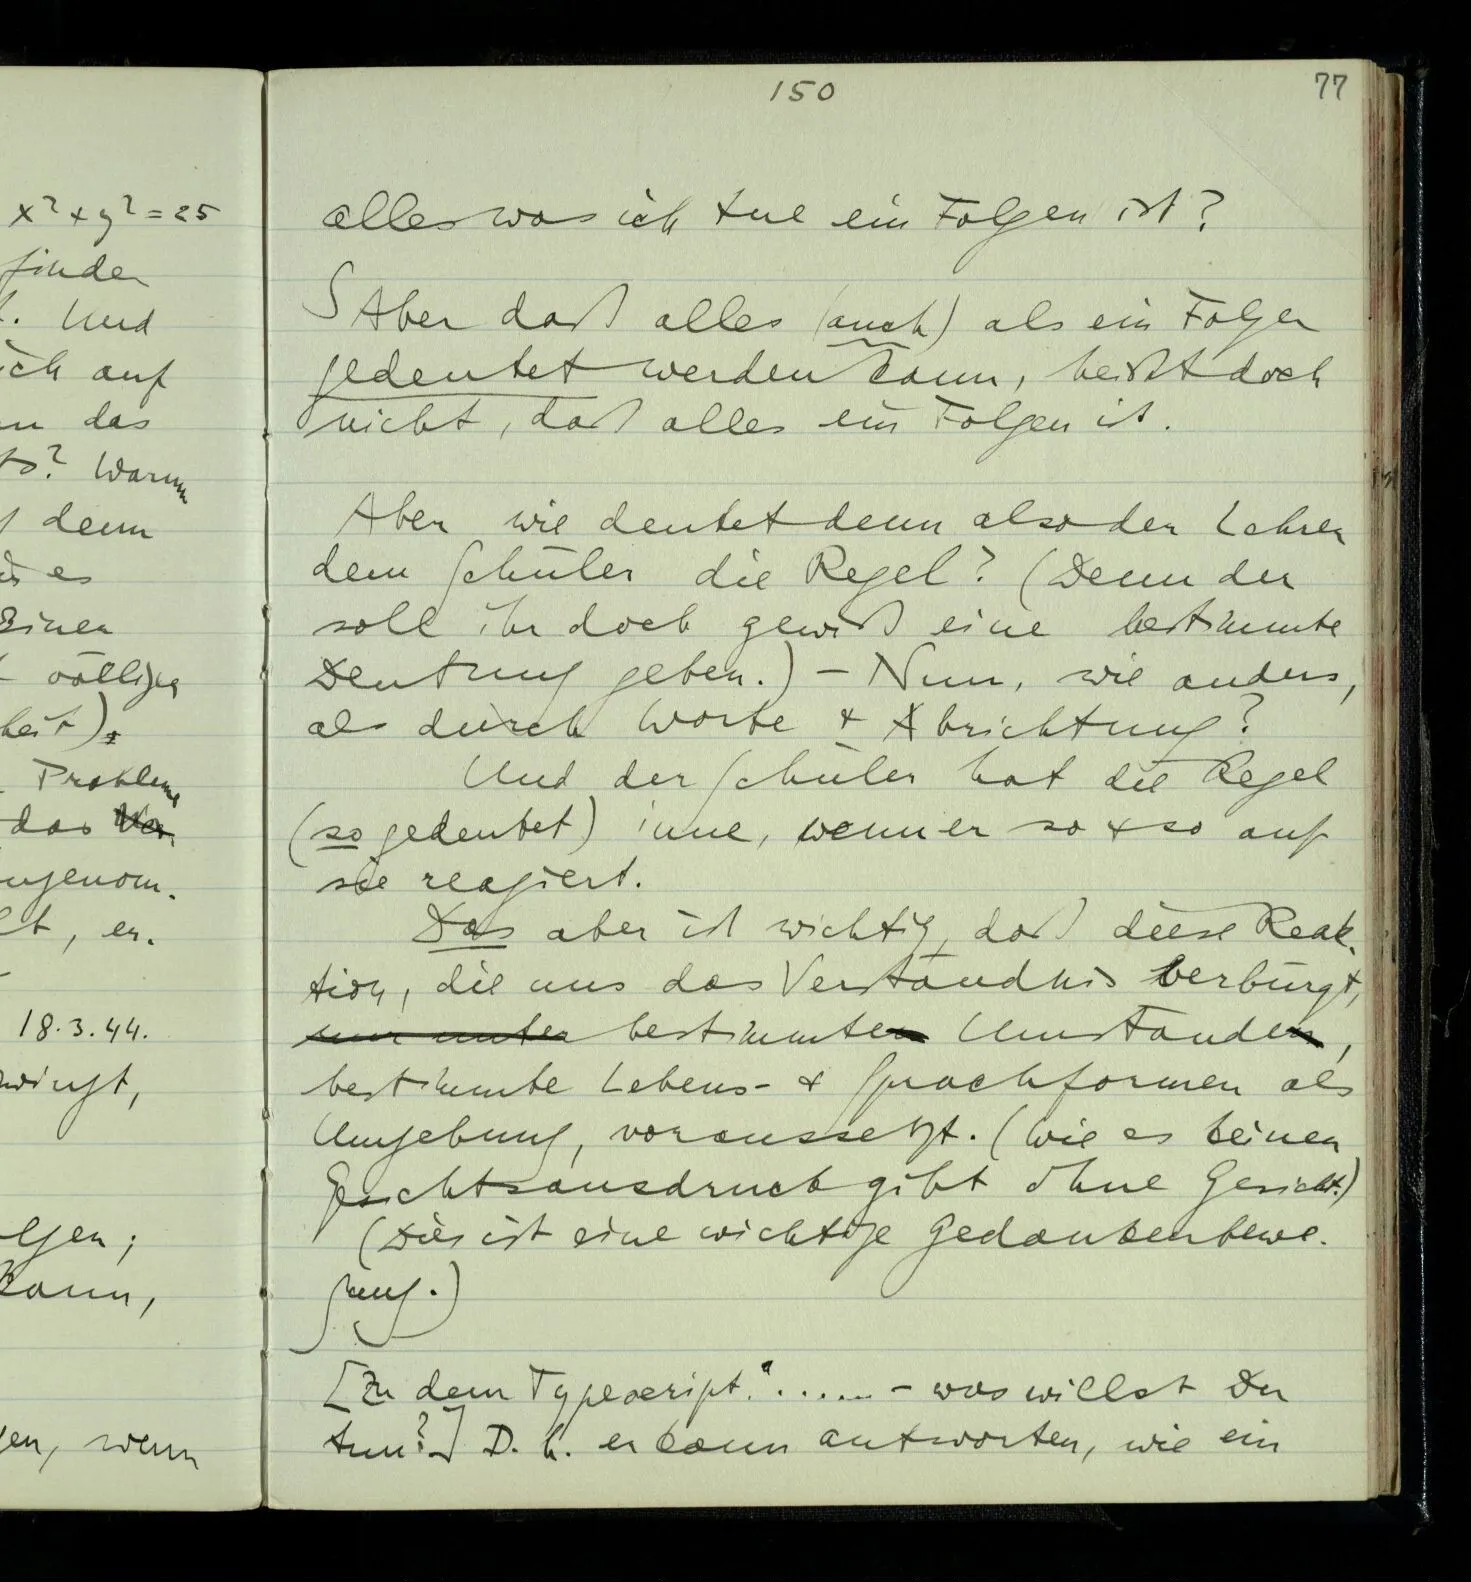 x² + y² = 25
finden
. Und
ich auf
das
? Warum
denn
es
Einer
völliger
heit).
Probleme
das
ngenom-
, er-
18.3.44.
zwingt,
lgen;
kann,
gen, wenn
150
77
alles was ich tue ein Folgen ist?
S Aber daß alles (auch) als ein Folgen
gedeutet werden kann, heißt doch
nicht, daß alles ein Folgen ist.
Aber wie deutet denn also der Lehrer
dem Schüler die Regel? (Denn der
soll ihr doch gewiß eine bestimmte
Deutung geben.) – Nun, wie anders,
als durch Worte & Abrichtung?
Und der Schüler hat die Regel
(so gedeutet) inne, wenn er so & so auf
sie reagiert.
Das aber ist wichtig, daß diese Reak-
tion, die uns das Verständnis verbürgt,
nur unter bestimmten Umstanden,
bestimmte Lebens- & Sprachformen als
Umgebung, voraussetzt. (Wie es keinen
Gesichtsausdruck gibt ohne Gesicht.)
(Dies ist eine wichtige Gedankenbewe-
gung.)
[Zu dem Typescript. "...... – was willst Du
tun?] D.h. er kann antworten, wie ein